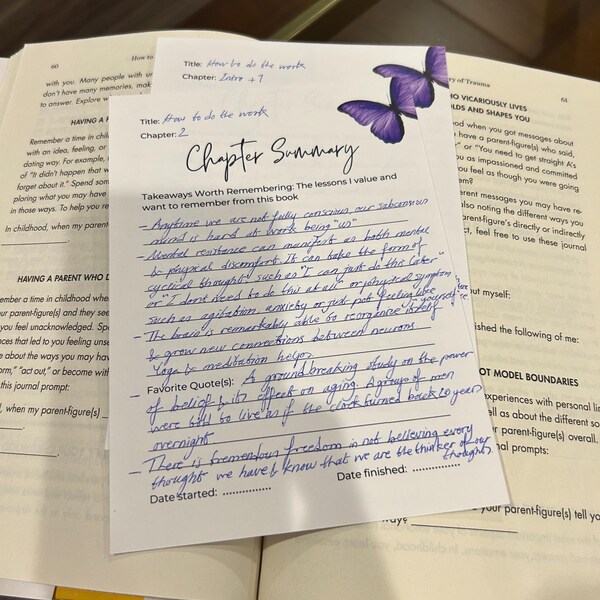 60
How to
with you. Many people with un
don't have many memories, mak
to answer. Explore w
HAVING A P
Remember a time in child
with an idea, feeling, or
dating way. For example,
of "It didn't happen that w
forget about it." Spend som
ploring what you may have
in those ways. To help you re
In childhood, when my parent-
HAVING A PARENT WHO D
ember a time in childhood when
ur parent-figure(s) and they see
you feel unacknowledged. Spe
nces that led to you feeling unse
e about the ways you may hav
orm," "act out," or become with
this journal prompt:
d, when my parent-figure(s)
Title: How to do the work
Chapter: Intro + 1
Title: How to do the work
Chapter: 2
Chapter Summary
Takeaways Worth Remembering: The lessons I value and
want to remember from this book
- Anytime we are not fully conscious our subconscious
mind is hard at work being "us"
- Mental resistance can manifest as both mental
& physical discomfort. It can take the form of
cyctical thoughts such as "I can just do this later"
or "I dont need to do this at all" or physical symptom
such as agitation, anxiety or just not feeling like
"yourself"
- The brain is remarkably able to reorganise itself
& grow new connections between neurons.
Yoga & meditation helps
Favorite Quote(s): A groundbreaking study on the power
of belief & its effect on aging. A group of men
were told to live as if the clock turned back 20 years
overnight
- There is tremendous freedom in not believing every
thought we have & know that we are the thinker of our
thoughts
Date started: ..............
Date finished: ..............
ry of Trauma
61
HO VICARIOUSLY LIVES
OLDS AND SHAPES YOU
od when you got messages about
have a parent-figure(s) who said,
" or "You need to get straight A's
ou as impassioned and committed
you feel as though you were going
em?
erent messages you may have re-
also noting the different ways you
arent-figure's directly or indirectly
ct, feel free to use these journal
out myself:
ished the following of me:
OT MODEL BOUNDARIES
experiences with personal lim
ell as about the different so
r parent-figure(s) overall.
nal prompts:
r parent-figure(s) tell yo
ways